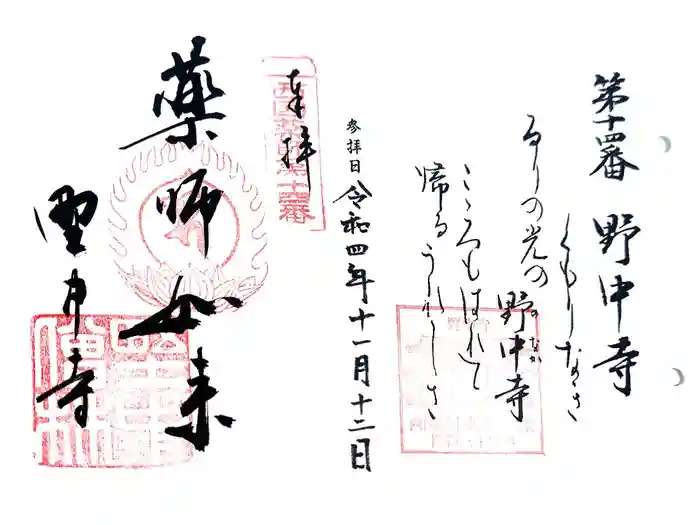 第十四番 野中寺
くもりなき
るりの光の 野中寺
のなか
こゝろもはれて
帰るうれしさ
参拝日 令和四年十一月十二日
奉拝
西国薬師第十四番
薬師如来
野中寺